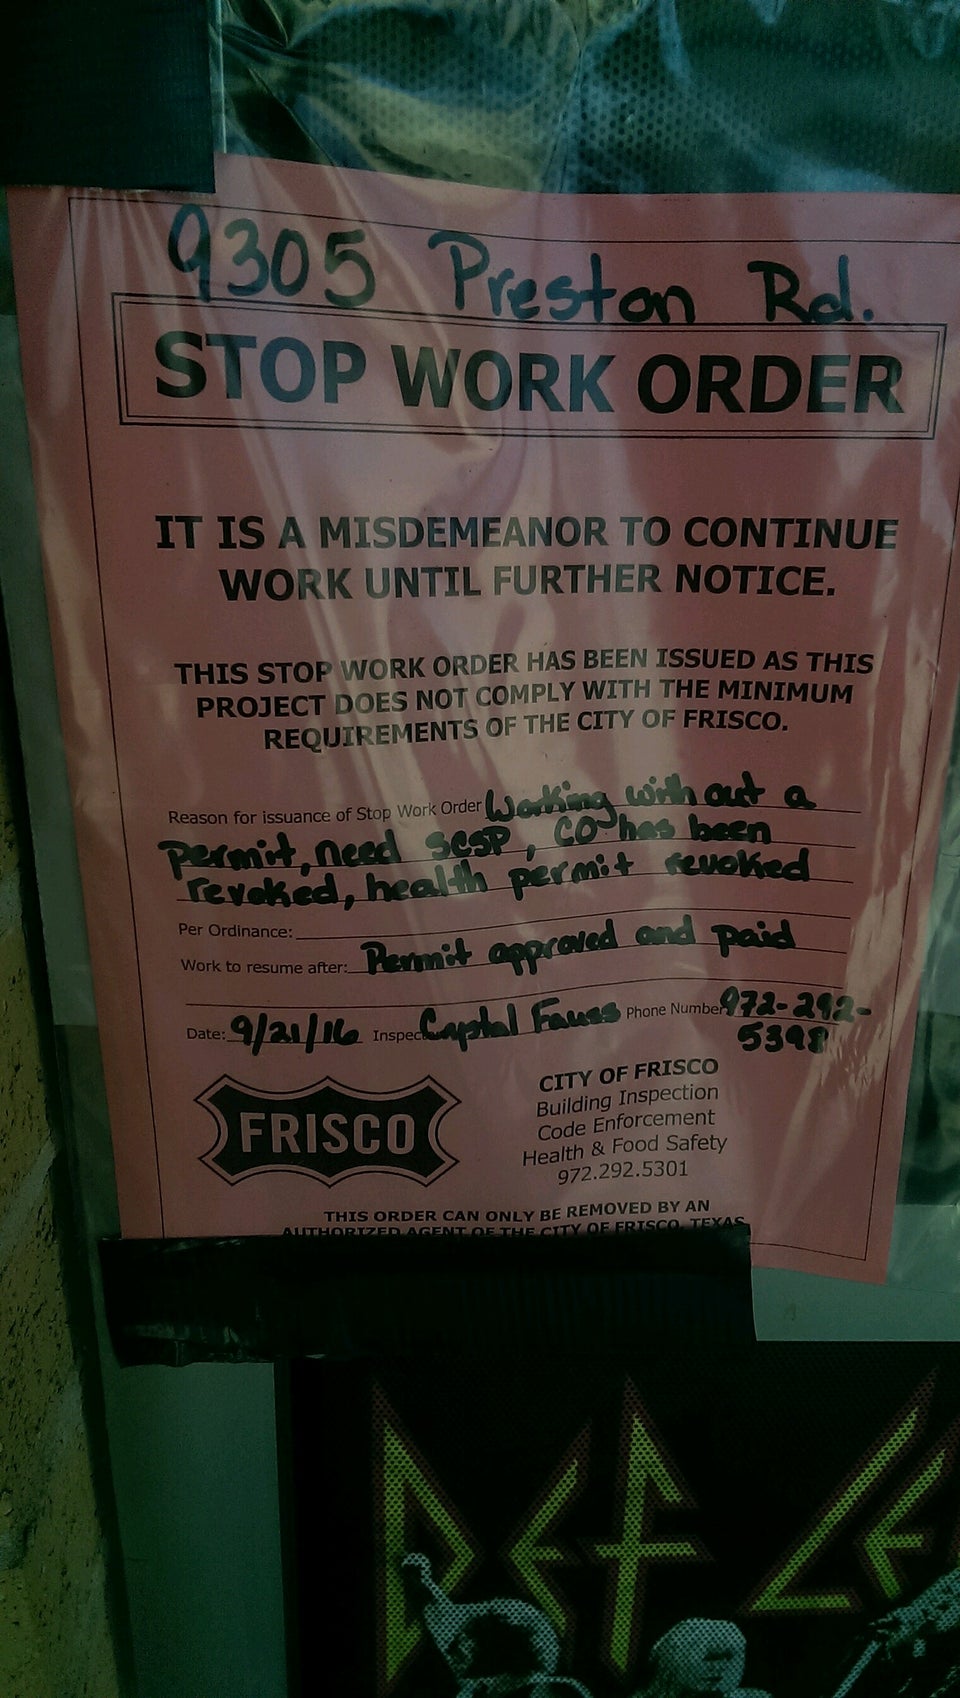 9305 Preston Rd.
STOP WORK ORDER
IT IS A MISDEMEANOR TO CONTINUE
WORK UNTIL FURTHER NOTICE.
THIS STOP WORK ORDER HAS BEEN ISSUED AS THIS
PROJECT DOES NOT COMPLY WITH THE MINIMUM
REQUIREMENTS OF THE CITY OF FRISCO.
Reason for issuance of Stop Work Order Working with out a
permit, need SCSP, CO has been
revoked, health permit revoked
Per Ordinance:
Work to resume after: Permit approved and paid
Date: 9/21/16 Inspec Phone Number 972-292-
5398
FRISCO
CITY OF FRISCO
Building Inspection
Code Enforcement
Health & Food Safety
972.292.5301
THIS ORDER CAN ONLY BE REMOVED BY AN
AUTHORIZED AGENT OF THE CITY OF FRISCO, TEXAS
DEF LE